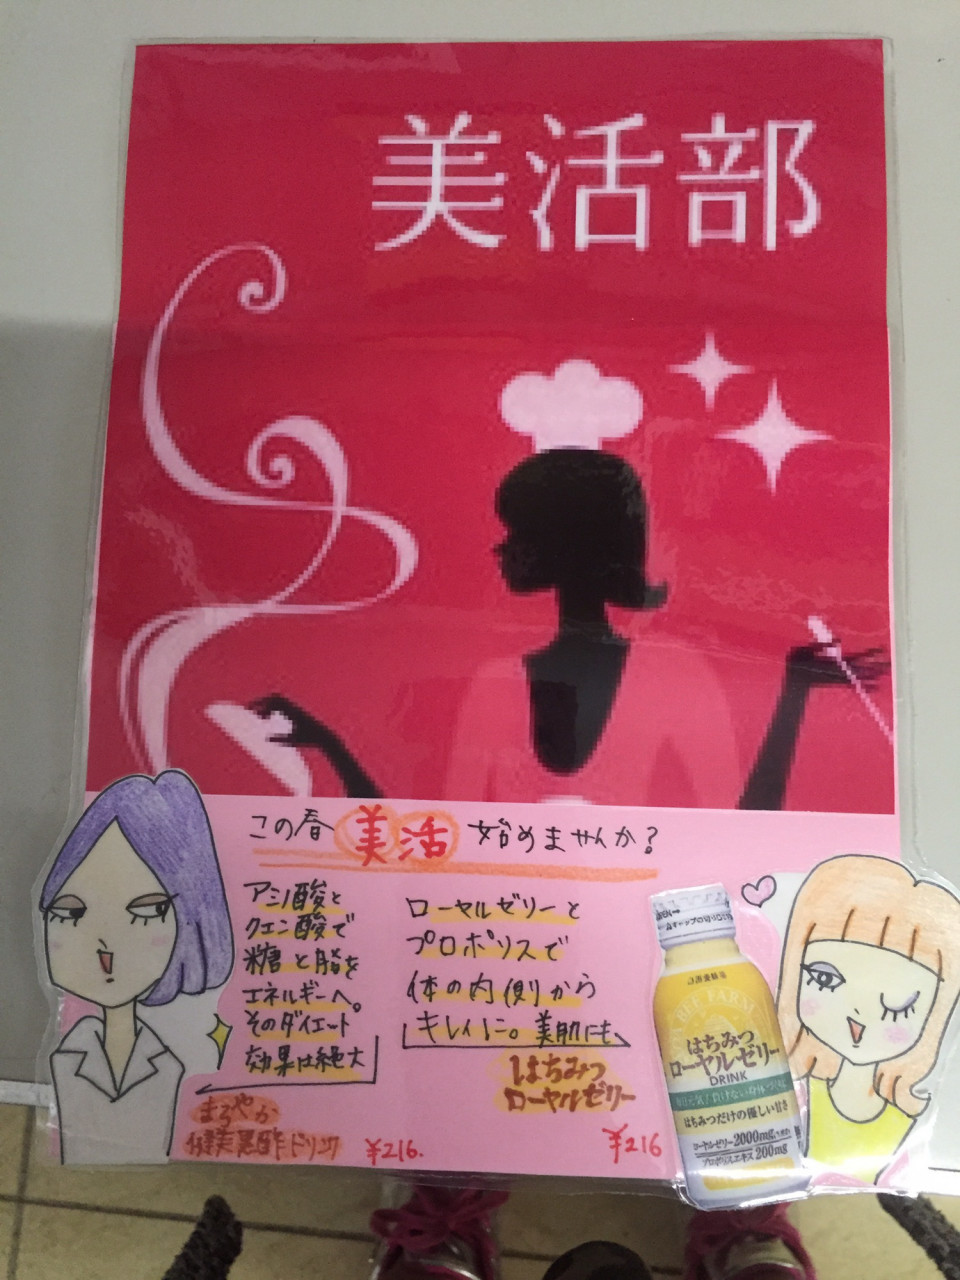 美活部
この春 美活 始めませんか?
アミノ酸と
クエン酸で
糖と脂を
エネルギーへ。
そのダイエット
効果は絶大
まろやか
黒酢ドリンク
¥216.
ローヤルゼリーと
プロポリスで
体の内側から
キレイに。美肌にも
はちみつ
ローヤルゼリー
¥216
BEE FARM
はちみつ
ローヤルゼリー
DRINK
はちみつだけの優しい甘さ
ローヤルゼリー2000mg
プロポリスエキス 200mg